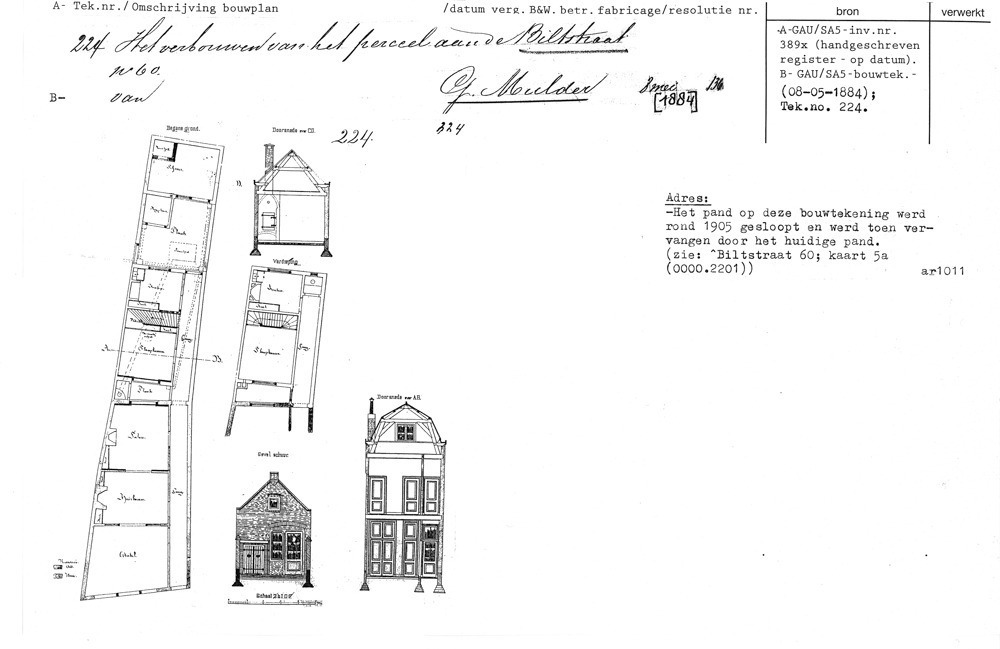 A- Tek.nr./Omschrijving bouwplan
/datum verg.B&W.betr.fabricage/resolutie nr.
bron
verwerkt
224 Het verbouwen van het perceel aan de Biltstraat
nº 60.
B- van
Mulder
8 mei
[1884]
136
-A-GAU/SA5-inv.nr.
389x (handgeschreven
register - op datum).
B- GAU/SA5-bouwtek.-
(08-05-1884);
Tek.no. 224.
Begane grond.
Doorsnede over CD.
224.
324
Adres:
-Het pand op deze bouwtekening werd
rond 1905 gesloopt en werd toen ver-
vangen door het huidige pand.
(zie: ^Biltstraat 60; kaart 5a
(0000.2201))
ar1011
Verdieping
Keuken
Slaapkamer
Gang
A.
B.
Plaats
Doorsnede over A.B.
Gevel schuur.
Salon
Huiskamer
Gang
Winkel